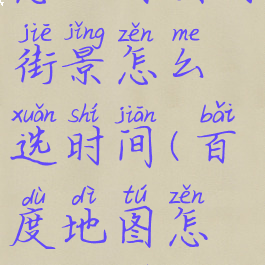 jiē jǐng zěn me
街景怎么
xuǎn shí jiān bǎi
选时间(百
dù dì tú zěn
度地图怎